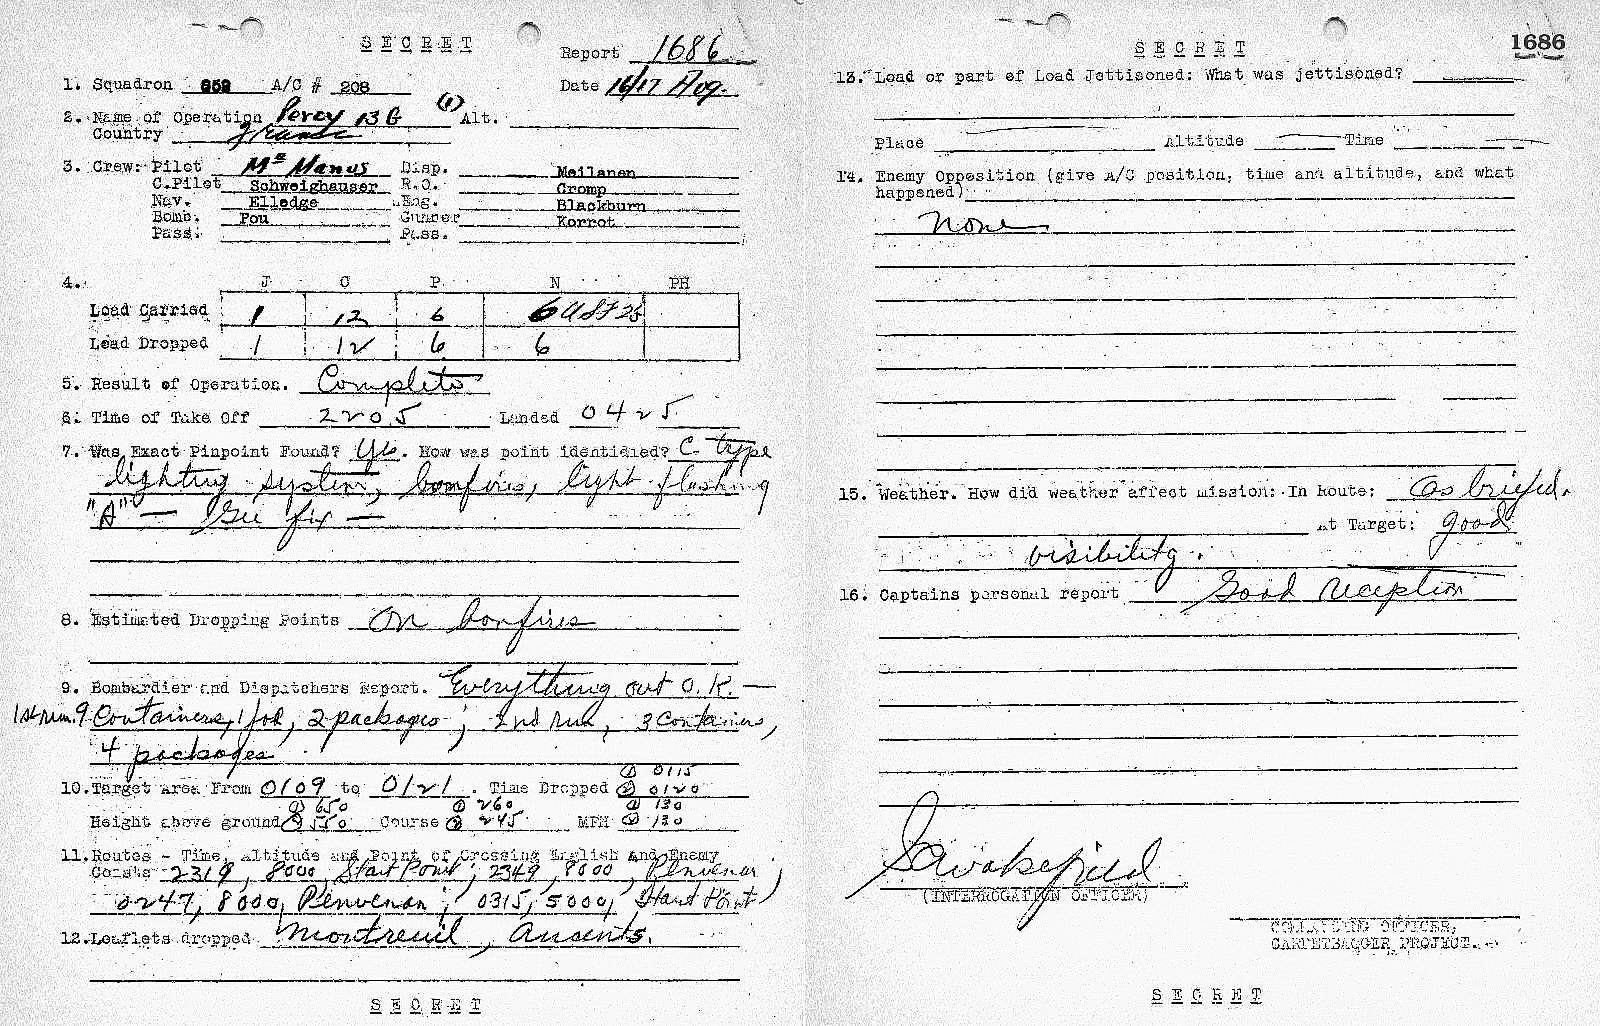 SECRET
Report 1686
1. Squadron 859 A/C # 208 Date 16/17 Aug.
2. Name of Operation Percy 13 G (1) Alt.
Country France
3. Crew: Pilot Mc Manus Disp. Meilanen
C.Pilot Schweighauser R.O. Cromp
Nav. Elledge Eng. Blackburn
Bomb. Pou Gunner Korrot
Pass. Pass.
4. J C P N PH
Load Carried 1 12 6 6 USF 25
Load Dropped 1 12 6 6
5. Result of Operation. Complete
6. Time of Take Off 2205 Landed 0425
7. Was Exact Pinpoint Found? Yes. How was point identified? C-type
lighting system, bonfires, light flashing
"A" — Gee fix —
8. Estimated Dropping Points On bonfires
9. Bombardier and Dispatchers Report. Everything out O.K. —
1st run. 9 Containers, 1 Joe, 2 packages; 2nd run, 3 Containers,
4 packages
① 0115
10. Target Area From 0109 to 0121. Time Dropped ② 0120
① 650 ① 260 ① 130
Height above ground ② 550 Course ② 245 MPH ② 130
11. Routes - Time, Altitude and Point of Crossing English and Enemy
Coasts 2319, 8000, Start Point; 2349, 8000, Penvenan;
0247, 8000, Penvenan; 0315, 5000, Start Point
12. Leaflets dropped Montreuil, Ancenis.
SECRET
SECRET
1686
13. Load or part of Load Jettisoned: What was jettisoned?
Place Altitude Time
14. Enemy Opposition (give A/C position, time and altitude, and what
happened)
None
15. Weather. How did weather affect mission: In Route: As briefed.
At Target: good
visibility.
16. Captains personal report Good reception
S A Wakefield
(INTERROGATION OFFICER)
COMMANDING OFFICER,
CARPETBAGGER PROJECT.
SECRET